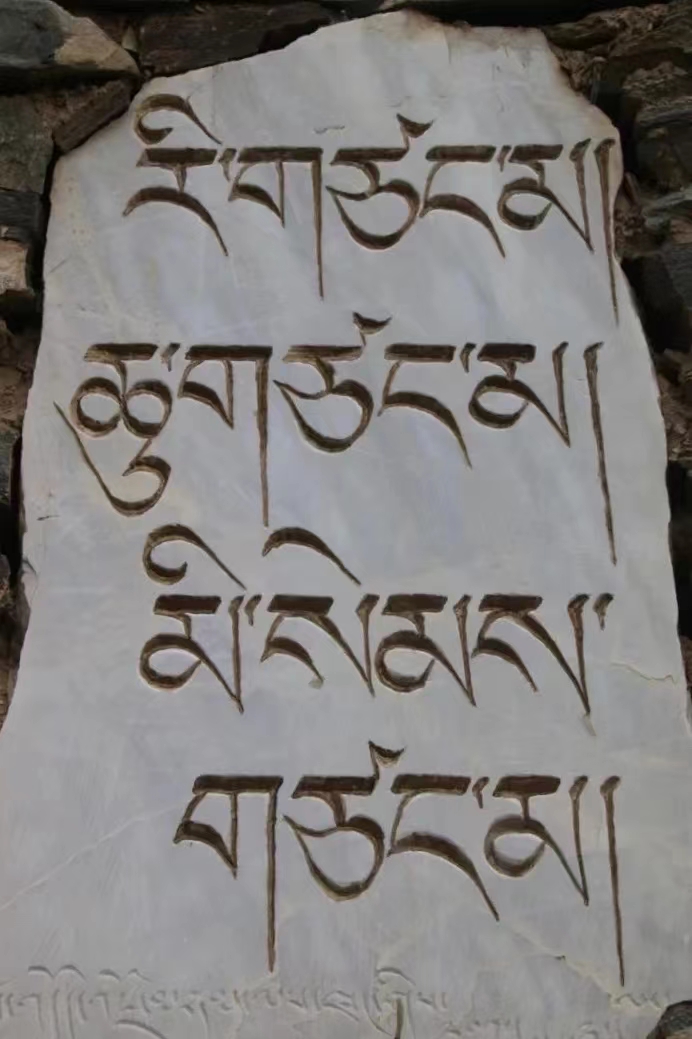 རི་གཙང་མ།།
ཆུ་གཙང་མ།།
མི་སེམས་
གཙང་མ།།